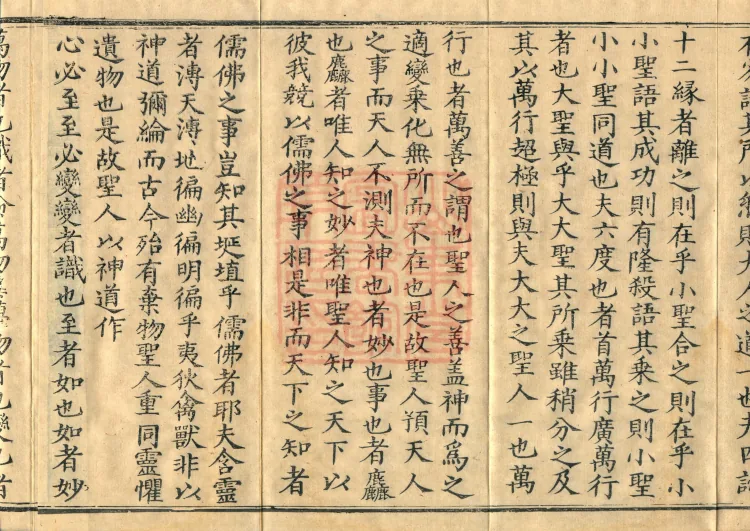 語其所以然則大人之道一也夫四諦
十二縁者離之則在乎小聖合之則在乎小
小聖語其成功則有隆殺語其乘之則小聖
小小聖同道也夫六度也者首萬行廣萬行
者也大聖與乎大大聖其所乘雖稍分之及
其以萬行超極則與夫大大之聖人一也萬
行也者萬善之謂也聖人之善盖神而爲之
適變乘化無所而不在也是故聖人預天人
之事而天人不測夫神也者妙也事也者麤
也麤者唯人知之妙者唯聖人知之天下以
彼我競以儒佛之事相是非而天下之知者
儒佛之事豈知其埏埴乎儒佛者耶夫含靈
者溥天溥地徧幽徧明徧乎夷狄禽獸非以
神道彌綸而古今殆有棄物聖人重同靈懼
遺物也是故聖人以神道作
心必至至必變變者識也至者如也如者妙
萬物者也識者紛萬物異萬物者也變也者